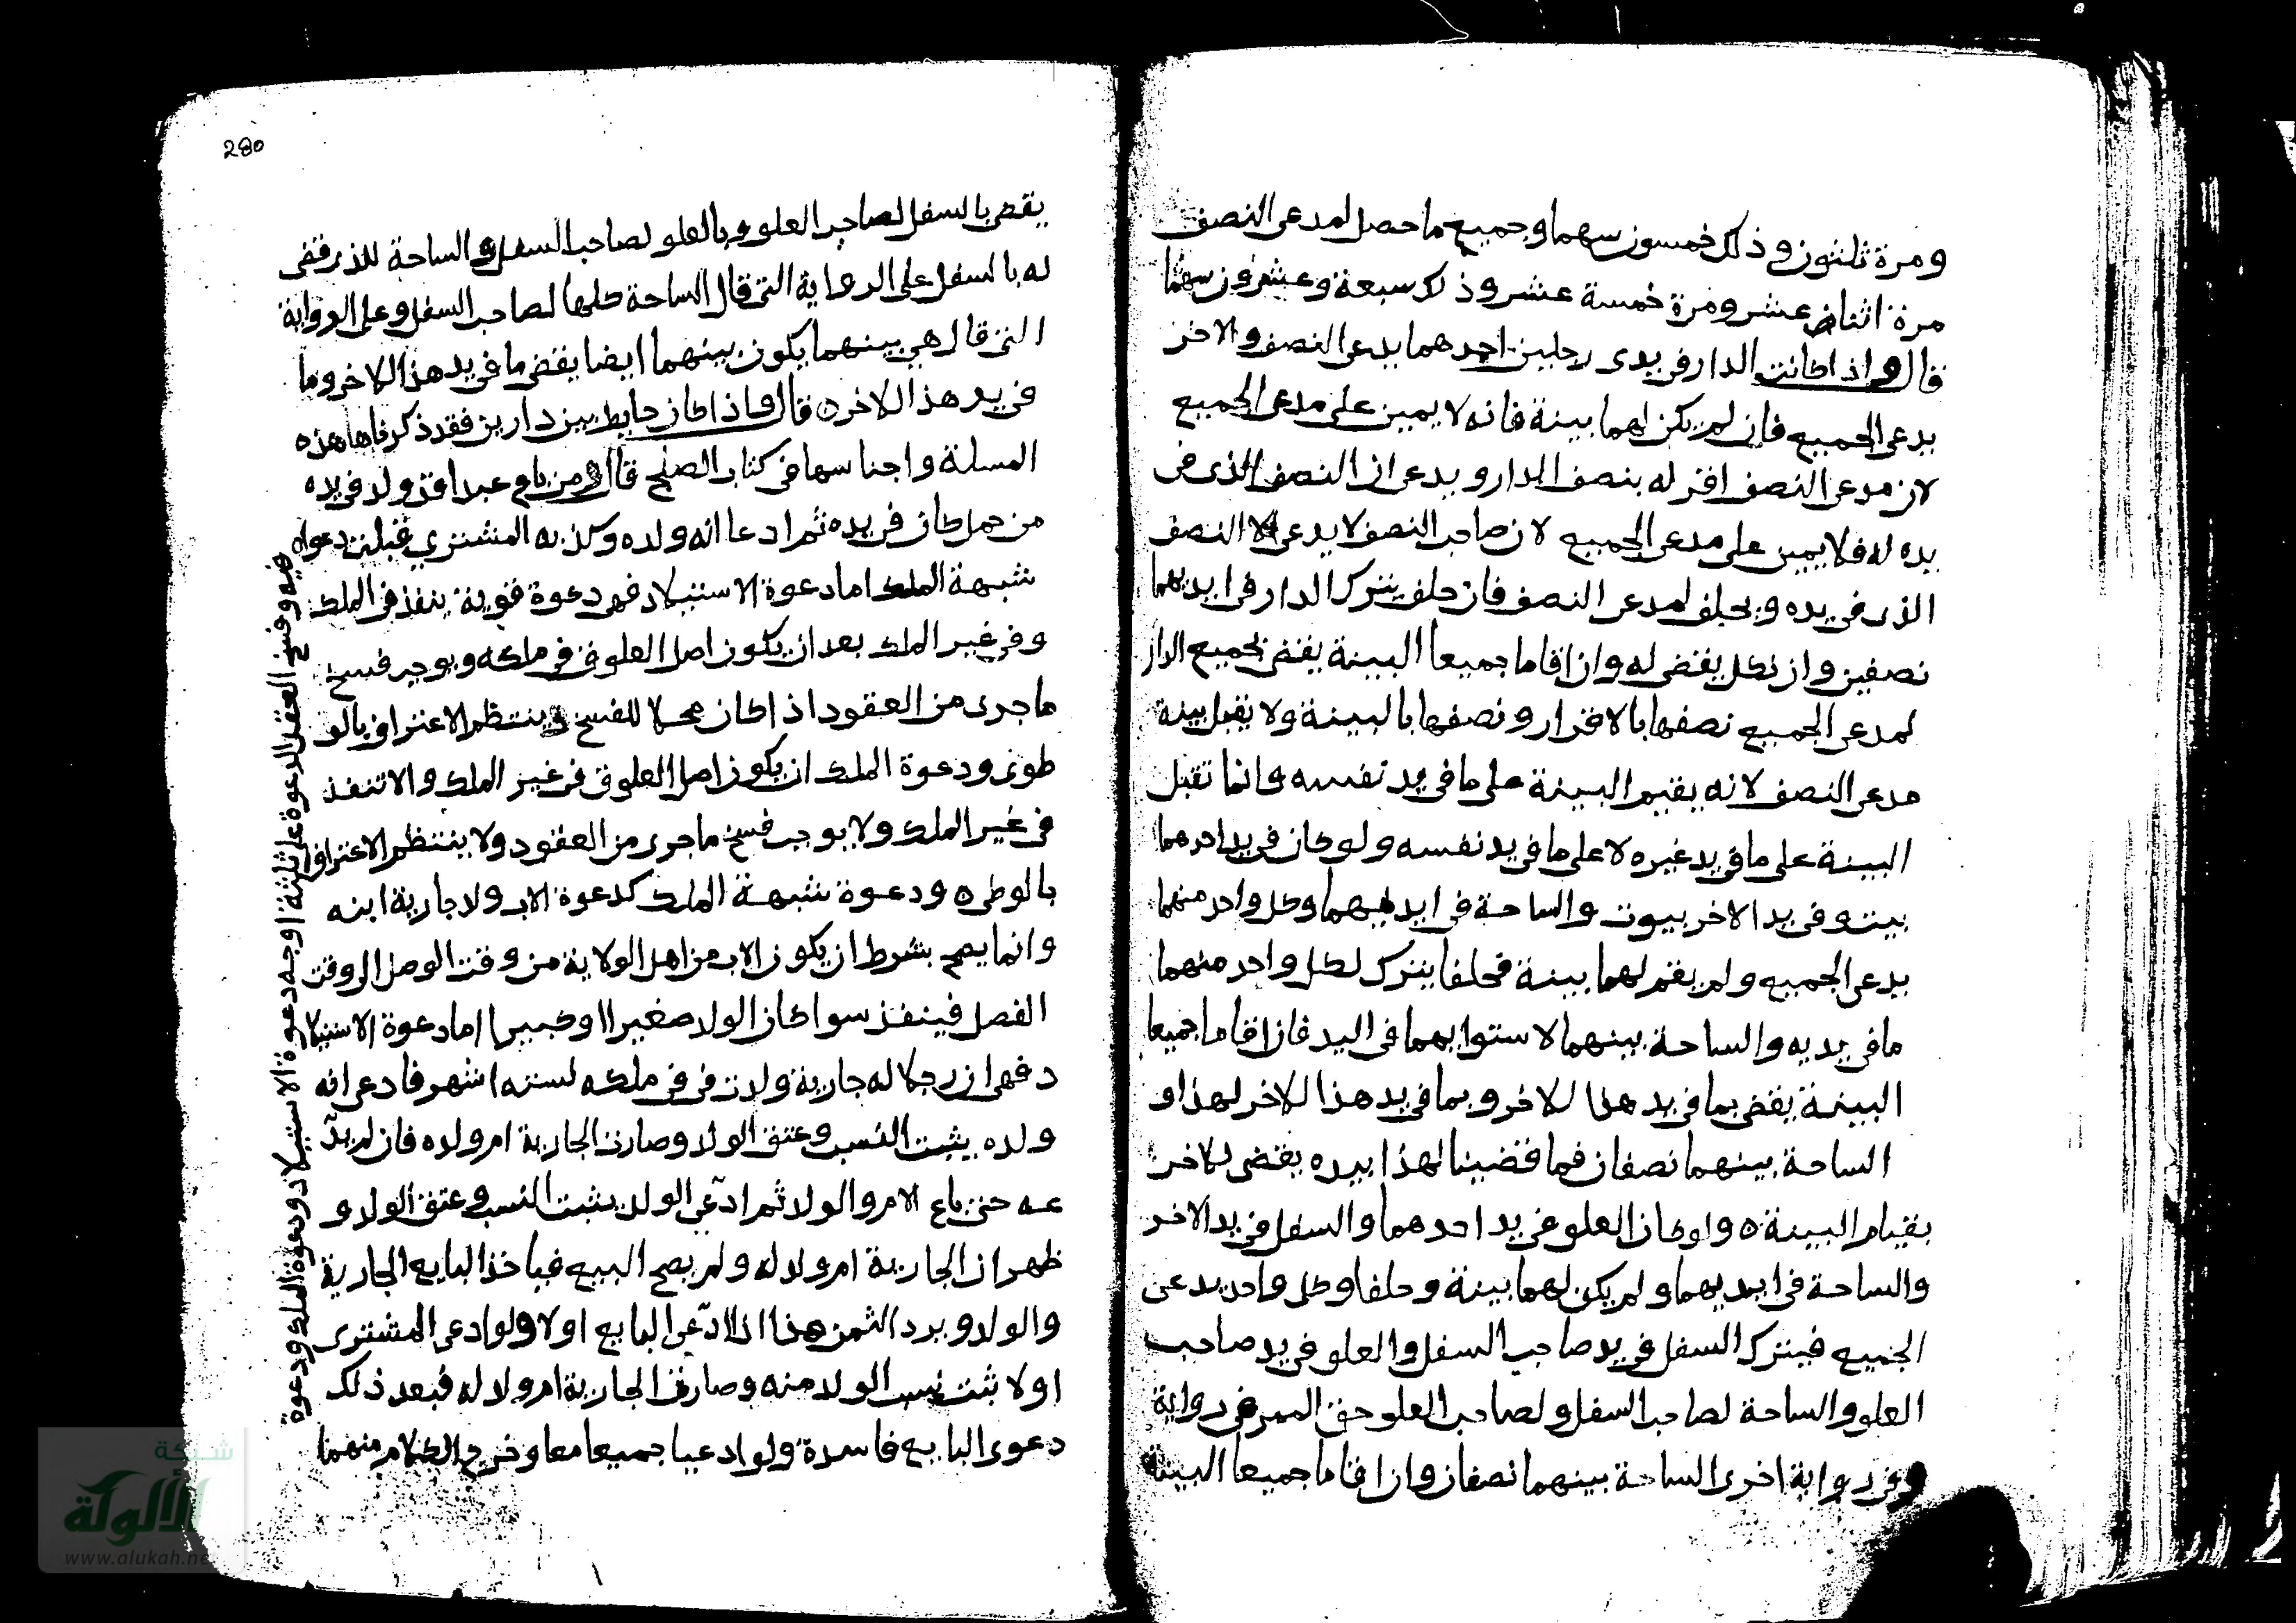 ومرة ثلثون وذلك خمسون سهما وجميع ما حصل لمدعى النصف
مرة اثنا عشر ومرة خمسة عشر وذلك سبعة وعشرون سهما
قال واذا كانت الدار فى يدى رجلين احدهما يدعى النصف والاخر
يدعى الجميع فان لم يكن لهما بينة فانه لا يمين على مدعى الجميع
لان مدعى النصف اقر له بنصف الدار ويدعى ان النصف الذى فى
يده له فلا يمين على مدعى الجميع لان صاحب النصف لا يدعى الا النصف
الذى فى يده ويحلف لمدعى النصف فان حلف يترك الدار فى ايديهما
نصفين وان نكل يقضى له وان اقاما جميعا البينة يقضى بجميع الدار
لمدعى الجميع نصفها بالاقرار ونصفها بالبينة ولا يقبل بينة
مدعى النصف لانه يقيم البينة على ما فى يد نفسه وانما تقبل
البينة على ما فى يد غيره لا على ما فى يد نفسه ولو كان فى يد احدهما
بيت وفى يد الاخر بيوت والساحة فى ايديهما وكل واحد منهما
يدعى الجميع ولم يقم لهما بينة فحلفا يترك لكل واحد منهما
ما فى يديه والساحة بينهما لاستوايهما فى اليد فان اقاما جميعا
البينة يقضى بما فى يد هذا للاخر وبما فى يد هذا الاخر لهذا و
الساحة بينهما نصفان فما قضينا لهذا بيده يقضى للاخر
بقيام البينة ه ولو كان العلو فى يد احدهما والسفل فى يد الاخر
والساحة فى ايديهما ولم يكن لهما بينة وحلفا وكل واحد يدعى
الجميع فيترك السفل فى يد صاحب السفل والعلو فى يد صاحب
العلو والساحة لصاحب السفل ولصاحب العلو حق الممر فى رواية
وفى رواية اخرى الساحة بينهما نصفان وان اقاما جميعا البينة
280
يقضى بالسفل لصاحب العلو وبالعلو لصاحب السفل والساحة للذى قضى
له بالسفل على الرواية التى قال الساحة كلها لصاحب السفل وعلى الرواية
التى قال هى بينهما يكون بينهما ايضا يقضى ما فى يد هذا للاخر وما
فى يد هذا للاخر ه قال واذا كان حايط بين دارين فقد ذكرناها هذه
المسلة واجناسها فى كتاب الصلح قال ومن باع عبدا قد ولد فى يده
من حمل كان فى يده ثم ادعا انه ولده وكذبه المشترى قبلت دعواه
فيه وفسخ العقد الدعوة على ثلثة اوجه دعوة الاستيلاد ودعوة الملك ودعوة
شبهة الملك اما دعوة الاستيلاد فهى دعوة قوية ينفذ فى الملك
وفى غير الملك بعد ان يكون اصل العلوق فى ملكه ويوجب فسخ
ما جرى من العقود اذا كان محلا للفسخ وينتظم الاعتراف بالو
طوى ودعوة الملك ان يكون اصل العلوق فى غير الملك والا تنفذ
فى غير الملك ولا يوجب فسخ ما جرى من العقود ولا ينتظم الاعتراف
بالوطى ه ودعوة شبهة الملك كدعوة الاب ولد جارية ابنه
وانما يصح بشرط ان يكون الاب من اهل الولاية من وقت الوصل الى وقت
الفصل فينفذ سوا كان الولد صغيرا او كبيرا اما دعوة الاستيلاد
فهى ان رجلا له جارية ولدت فى ملكه لستة اشهر فادعى انه
ولده يثبت النسب وعتق الولد وصارت الجارية ام ولده فان لم يد
عه حتى باع الام والولد ثم ادعى الولد يثبت النسب وعتق الولد و
ظهر ان الجارية ام ولد له ولم يصح البيع فياخذ البايع الجارية
والولد ويرد الثمن هذا اذا ادعى البايع اولا ولو ادعى المشترى
اولا ثبت نسب الولد منه وصارت الجارية ام ولد له فبعد ذلك
دعوى البايع فاسدة ولو ادعيا جميعا معا وخرج الكلام منهما
شبكة
الألوكة
www.alukah.net